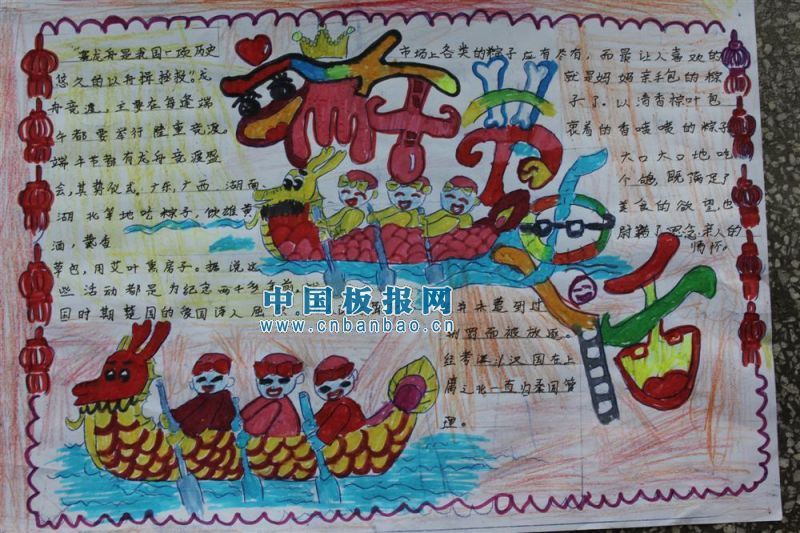 “赛龙舟是我国一项历史
悠久的
舟竞渡，主要在每逢端
午都要举行隆重竞渡。
端午节都有龙舟竞渡盛
会，其势仪式。广东，广西，湖南
湖北等地吃粽子，饮雄黄
酒，戴香
草包，用艾叶熏房子。据说这
些活动都是为纪念两千多年前，
国时期楚国的爱国诗人屈
市场上各类的粽子应有尽有，而最让人喜欢的
就是妈妈亲手包的粽
子了。以清香粽叶包
裹着的香喷喷的粽子
大口大口地吃
个饱，既满足了
美食的欲望，也
尉籍了思念亲人的
情怀。
并未遭到过
而被放逐。
理。
中国板报网
www.cnbanbao.cn